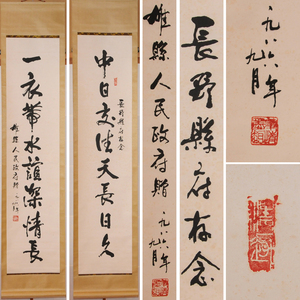 中日友誼天長日久
長野縣府存念
一衣帶水誼深情長
雄縣人民政府贈 一九八六年九月
雄縣人民政府贈 一九八六年九月
長野縣府存念
一九八六年
九月